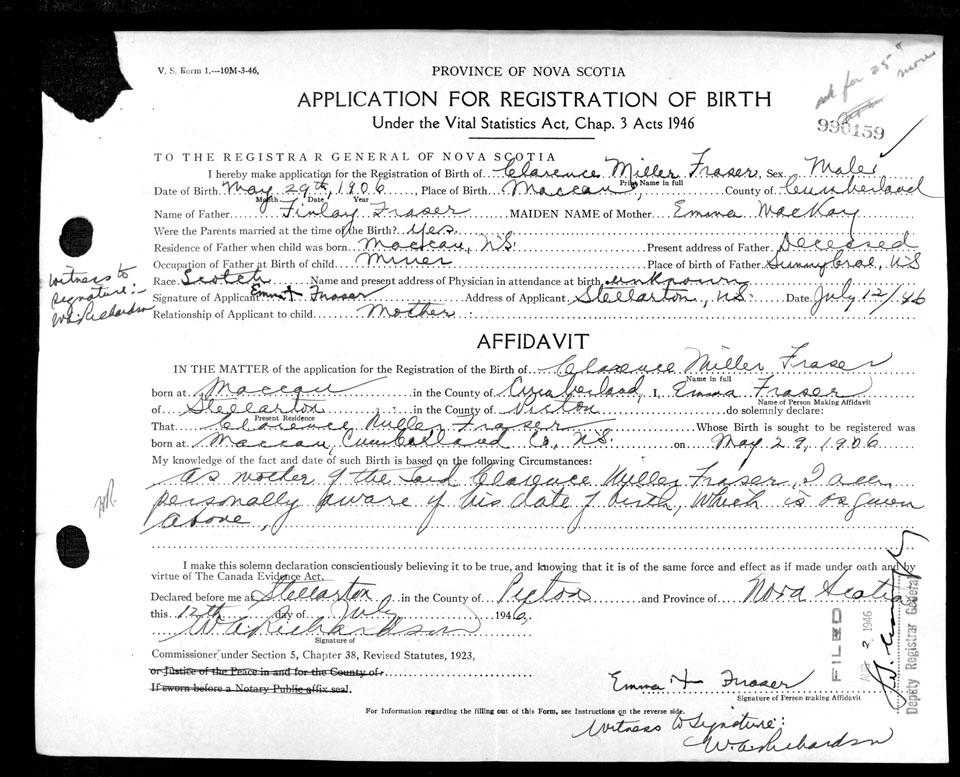 V. S. Form 1.---10M-3-46,
PROVINCE OF NOVA SCOTIA
ask for 25¢ more
APPLICATION FOR REGISTRATION OF BIRTH
990159
Under the Vital Statistics Act, Chap. 3 Acts 1946
TO THE REGISTRAR GENERAL OF NOVA SCOTIA
I hereby make application for the Registration of Birth of Clarence Miller Fraser, Sex Male
Print Name in full
Date of Birth May 29th, 1906, Place of Birth Maccan, County of Cumberland
Month Date Year
Name of Father Finlay Fraser MAIDEN NAME of Mother Emma MacKay
Were the Parents married at the time of the Birth? Yes.
Residence of Father when child was born Maccan, N.S. Present address of Father Deceased
Occupation of Father at Birth of child Miner Place of birth of Father Sunny Brae, N.S.
Race Scotch Name and present address of Physician in attendance at birth unknown
Signature of Applicant Emma + Fraser Address of Applicant Stellarton, N.S. Date July 12/46
Relationship of Applicant to child Mother
Witness to
signature:-
W.A. Richardson
AFFIDAVIT
IN THE MATTER of the application for the Registration of the Birth of Clarence Miller Fraser
Name in full
born at Maccan in the County of Cumberland, I, Emma Fraser
Name of Person Making Affidavit
of Stellarton in the County of Pictou do solemnly declare:
Present Residence
That Clarence Miller Fraser Whose Birth is sought to be registered was
born at Maccan, Cumberland Co., N.S. on May 29, 1906
My knowledge of the fact and date of such Birth is based on the following Circumstances:
As mother of the said Clarence Miller Fraser, I am
personally aware of his date of birth, which is as given
above,
I make this solemn declaration conscientiously believing it to be true, and knowing that it is of the same force and effect as if made under oath and by
virtue of The Canada Evidence Act.
Declared before me at Stellarton in the County of Pictou and Province of Nova Scotia
this 12th day of July 1946.
W A Richardson
Signature of
Commissioner under Section 5, Chapter 38, Revised Statutes, 1923,
or Justice of the Peace in and for the County of
If sworn before a Notary Public affix seal.
FILED
AUG 2 1946
Deputy Registrar General
Emma + Fraser
Signature of Person making Affidavit
For Information regarding the filling out of this Form, see Instructions on the reverse side.
Witness to Signature:
W.A. Richardson